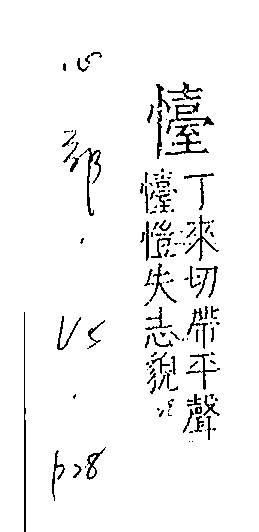 懛
丁來切帶平聲
懛愷失志貌
心部.V5.p28